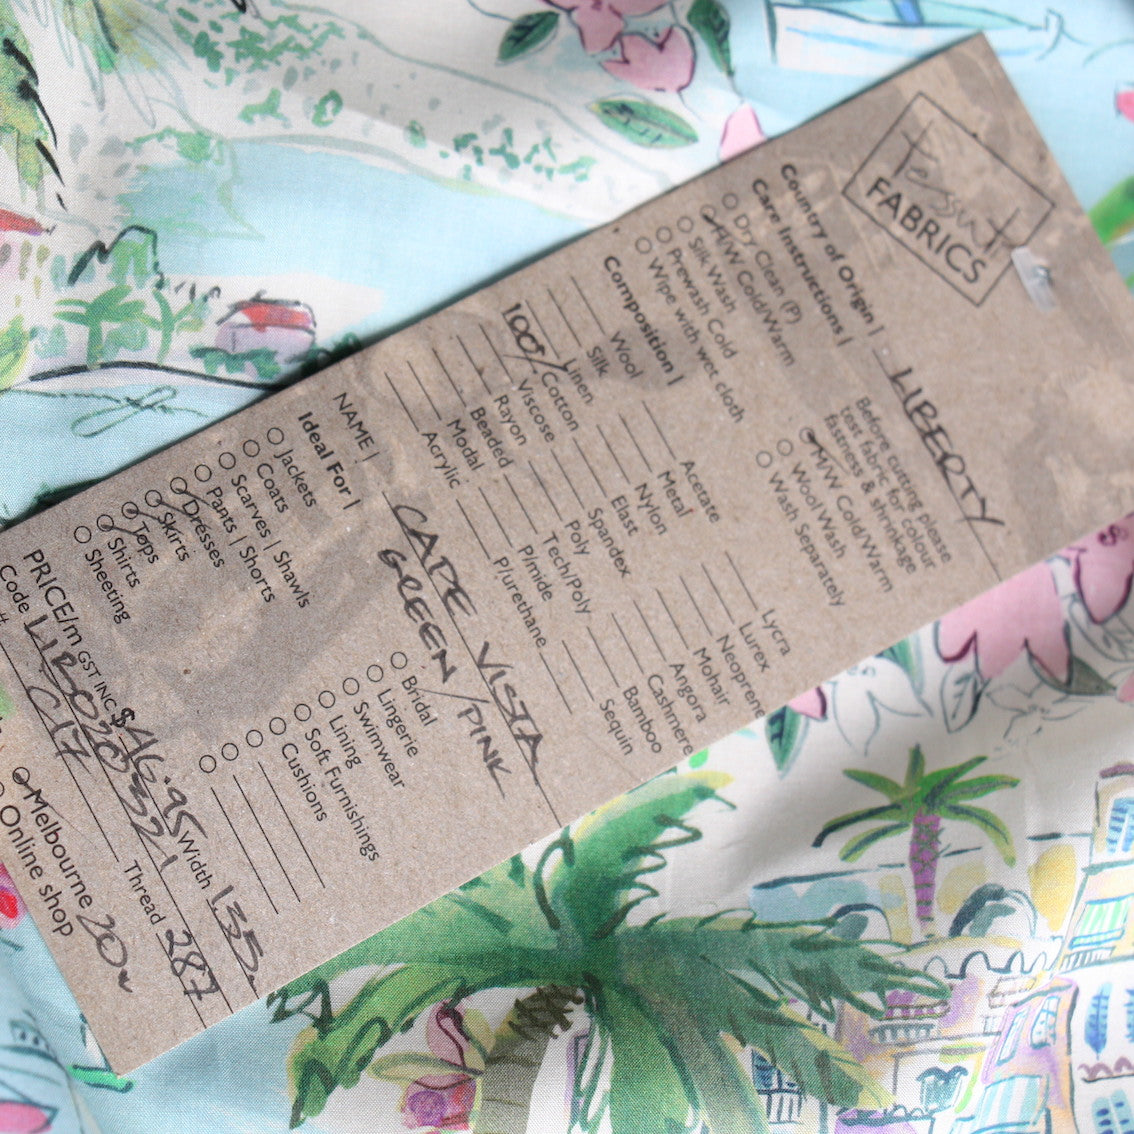 Tessuti
FABRICS
Country of Origin | LIBERTY
Care Instructions |
Before cutting please
test fabric for colour
fastness & shrinkage
Dry Clean (P)
H/W Cold/Warm
Silk Wash
Prewash Cold
Wipe with wet cloth
M/W Cold/Warm
Wool Wash
Wash Separately
Composition |
Wool
Silk
Linen
100% Cotton
Viscose
Rayon
Beaded
Modal
Acrylic
Acetate
Metal
Nylon
Elast
Spandex
Poly
Tech/Poly
P/mide
P/urethane
Lycra
Lurex
Neoprene
Mohair
Angora
Cashmere
Bamboo
Sequin
NAME | CAPE VISTA
GREEN/PINK
Ideal For |
Jackets
Coats
Scarves | Shawls
Pants | Shorts
Dresses
Skirts
Tops
Shirts
Sheeting
Bridal
Lingerie
Swimwear
Lining
Soft Furnishings
Cushions
PRICE/m GST INC $46.95 Width 135
Code LIB0203321 Thread 287
C17
Melbourne 20m
Online shop